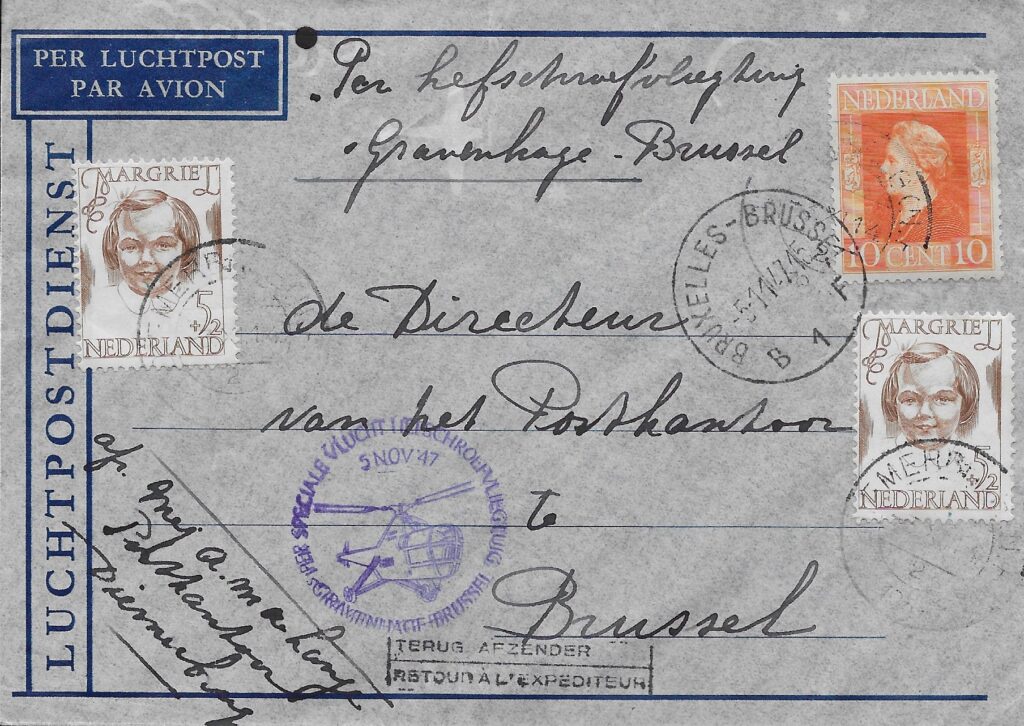 PER LUCHTPOST
PAR AVION
LUCHTPOSTDIENST
Per hefschroefvliegtuig
Gravenhage - Brussel
NEDERLAND
10 CENT 10
MARGRIET
5
+2
NEDERLAND
BRUXELLES-BRUSSEL
5-11-47
B 1
de Directeur
MARGRIET
5
+2
NEDERLAND
van het Postkantoor
PER SPECIALE VLUCHT HEFSCHROEFVLIEGTUIG
5 NOV '47
'sGRAVENHAGE-BRUSSEL
te
Brussel
afz. Mej. A. M. de
Postkantoor
TERUG AFZENDER
RETOUR À L'EXPEDITEUR